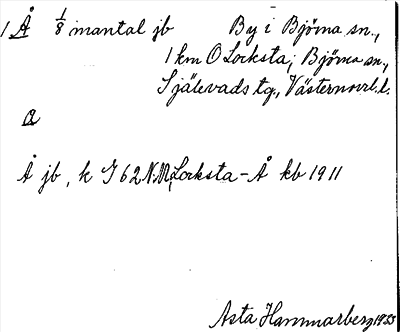 1 Å 1/8 mantal jb By i Björna sn.,
1 km O Locksta; Björna sn.,
Själevads tg., Västernorrl. l.
a
Å jb, k J 62 N.M, Locksta-Å kb 1911
Asta Hammarberg 1935